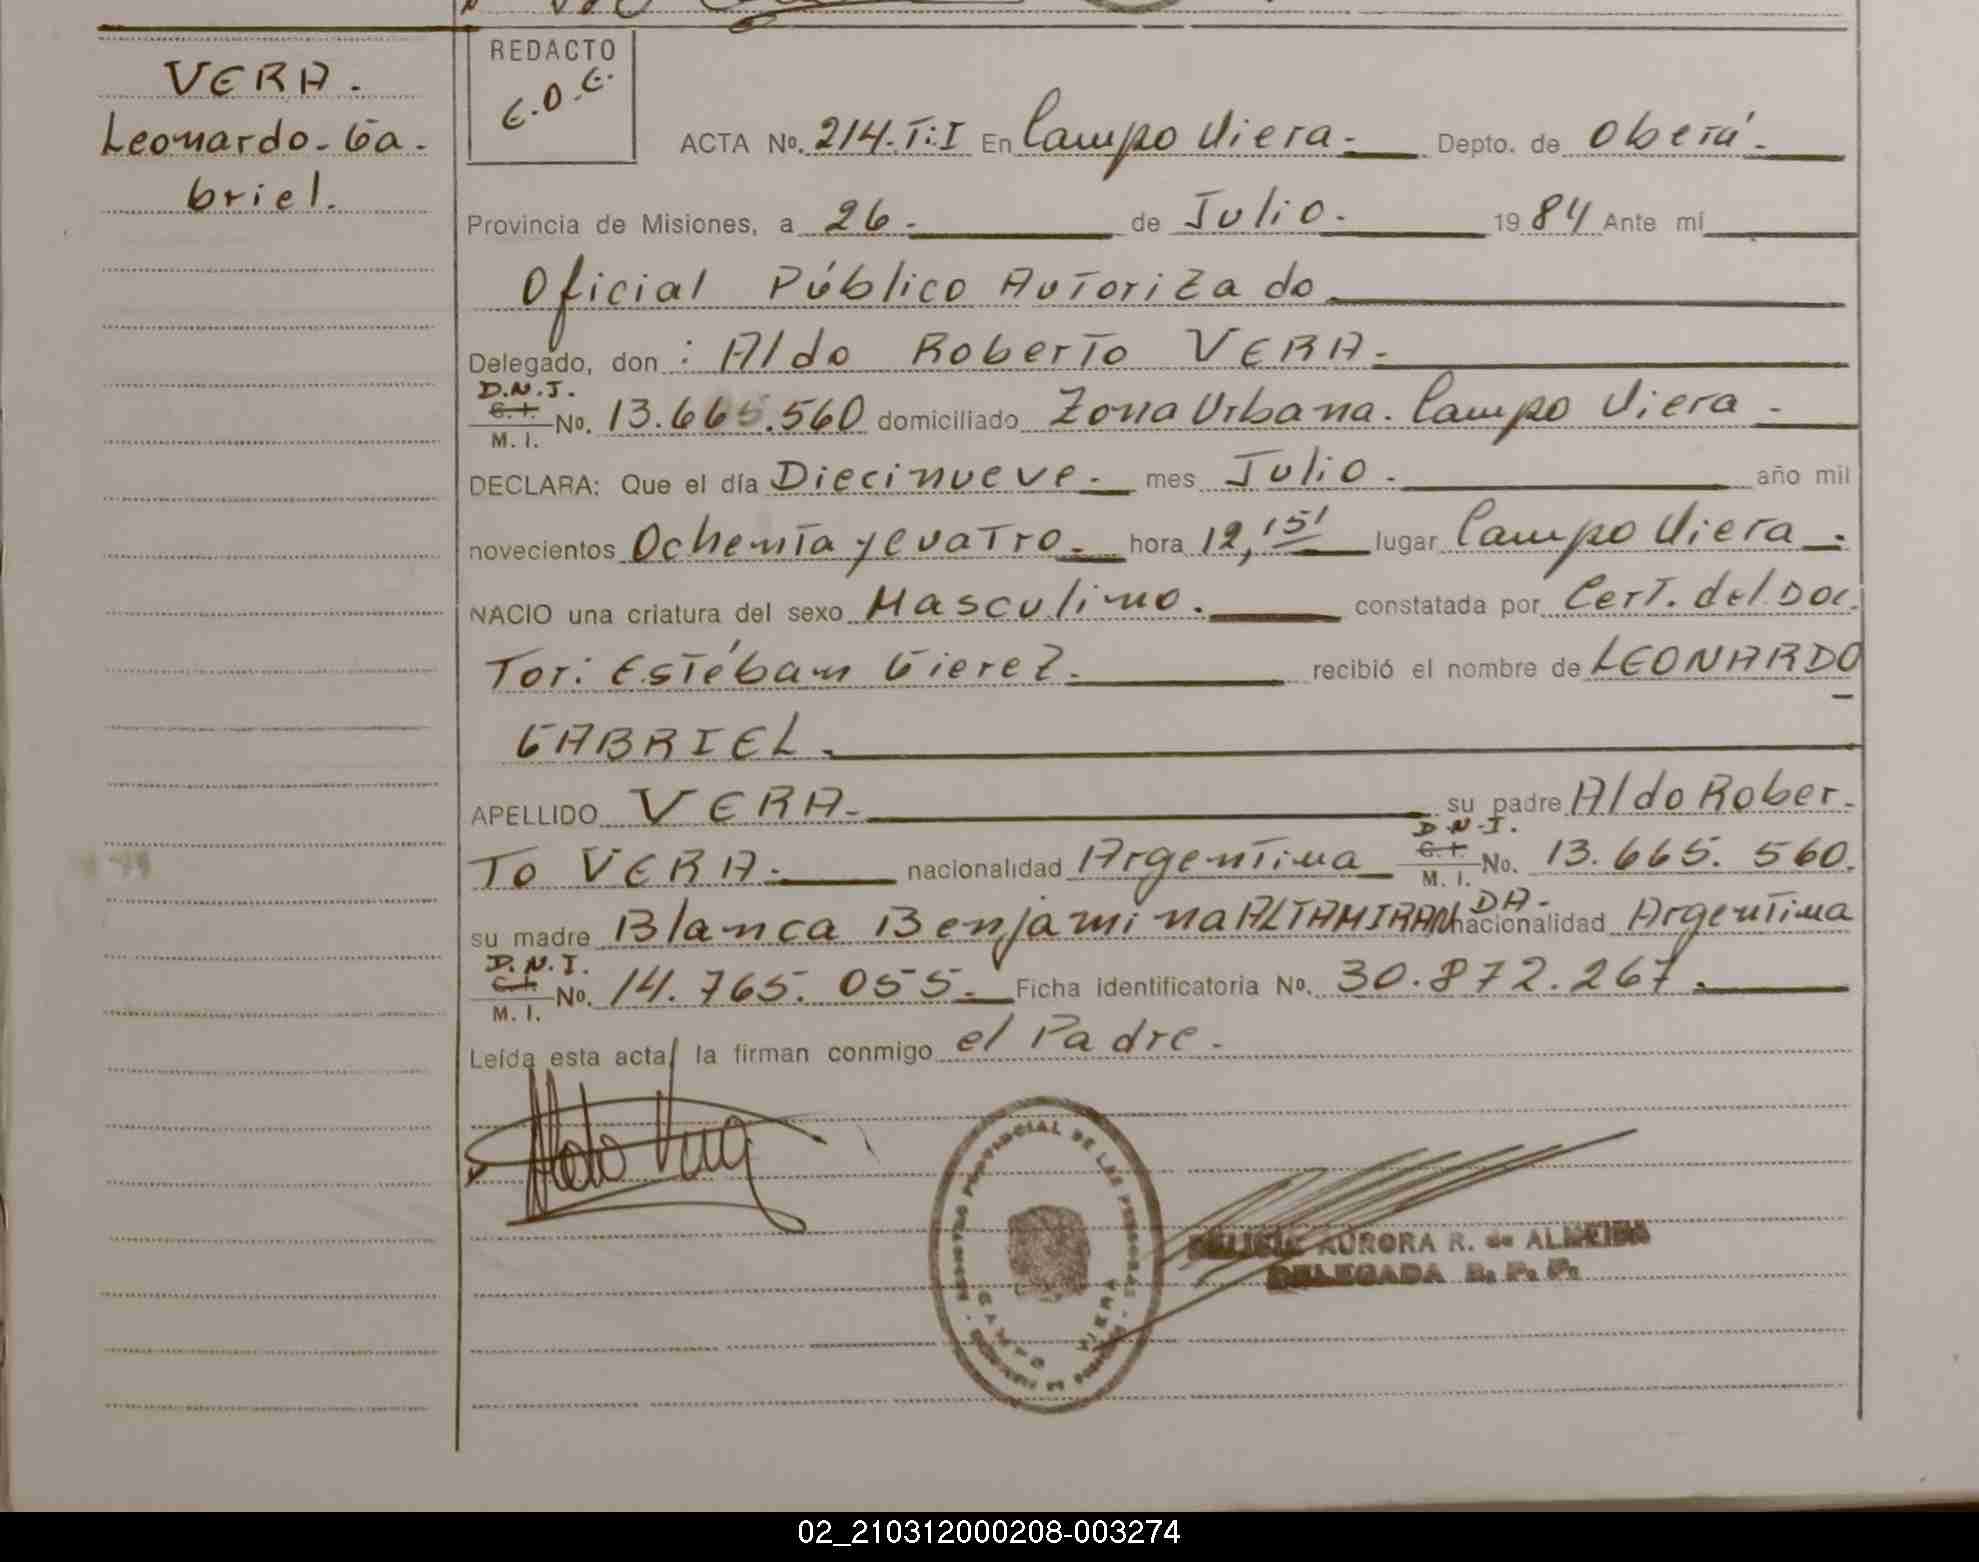 VERA.
Leonardo-Ga-
briel.
REDACTO
E.O.E.
ACTA No. 214.T:I En Campo Viera.- Depto. de Oberá.-
Provincia de Misiones, a 26.- de Julio. 1984 Ante mí
Oficial Público Autorizado
Delegado, don: Aldo Roberto VERA.-
D.N.I.
C.I.
M. I. No. 13.665.560 domiciliado Zona Urbana. Campo Viera.-
DECLARA: Que el día Diecinueve.- mes Julio. año mil
novecientos Ochenta y Cuatro.- hora 12,15' lugar Campo Viera.-
NACIO una criatura del sexo Masculino. constatada por Cert. del Doc.
Tor: Estéban Gierez. recibió el nombre de LEONARDO
GABRIEL.
APELLIDO VERA.- su padre Aldo Rober-
To VERA.- nacionalidad Argentina D.N.I. C.I. M. I. No. 13.665.560.
su madre Blanca Benjamina ALTAMIRANDA- nacionalidad Argentina
D.N.I. C.I. M. I. No. 14.765.055.- Ficha identificatoria No. 30.872.267.
Leída esta acta, la firman conmigo el Padre.-
Aldo Vera
REGISTRO PROVINCIAL DE LAS PERSONAS
CAMPO VIERA
AURORA R. de ALMEIDA
DELEGADA R. P. P.
02_210312000208-003274